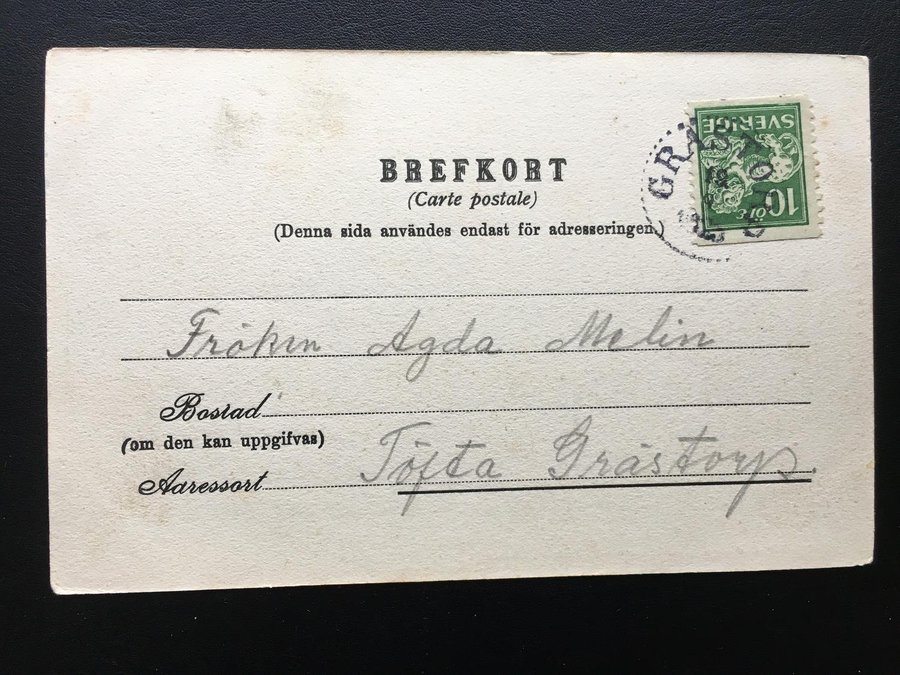 SVERIGE
10 ÖRE
GRÄSTORP
BREFKORT
(Carte postale)
(Denna sida användes endast för adresseringen.)
Fröken Agda Melin
Bostad
(om den kan uppgifvas)
Töfta Grästorp.
Adressort